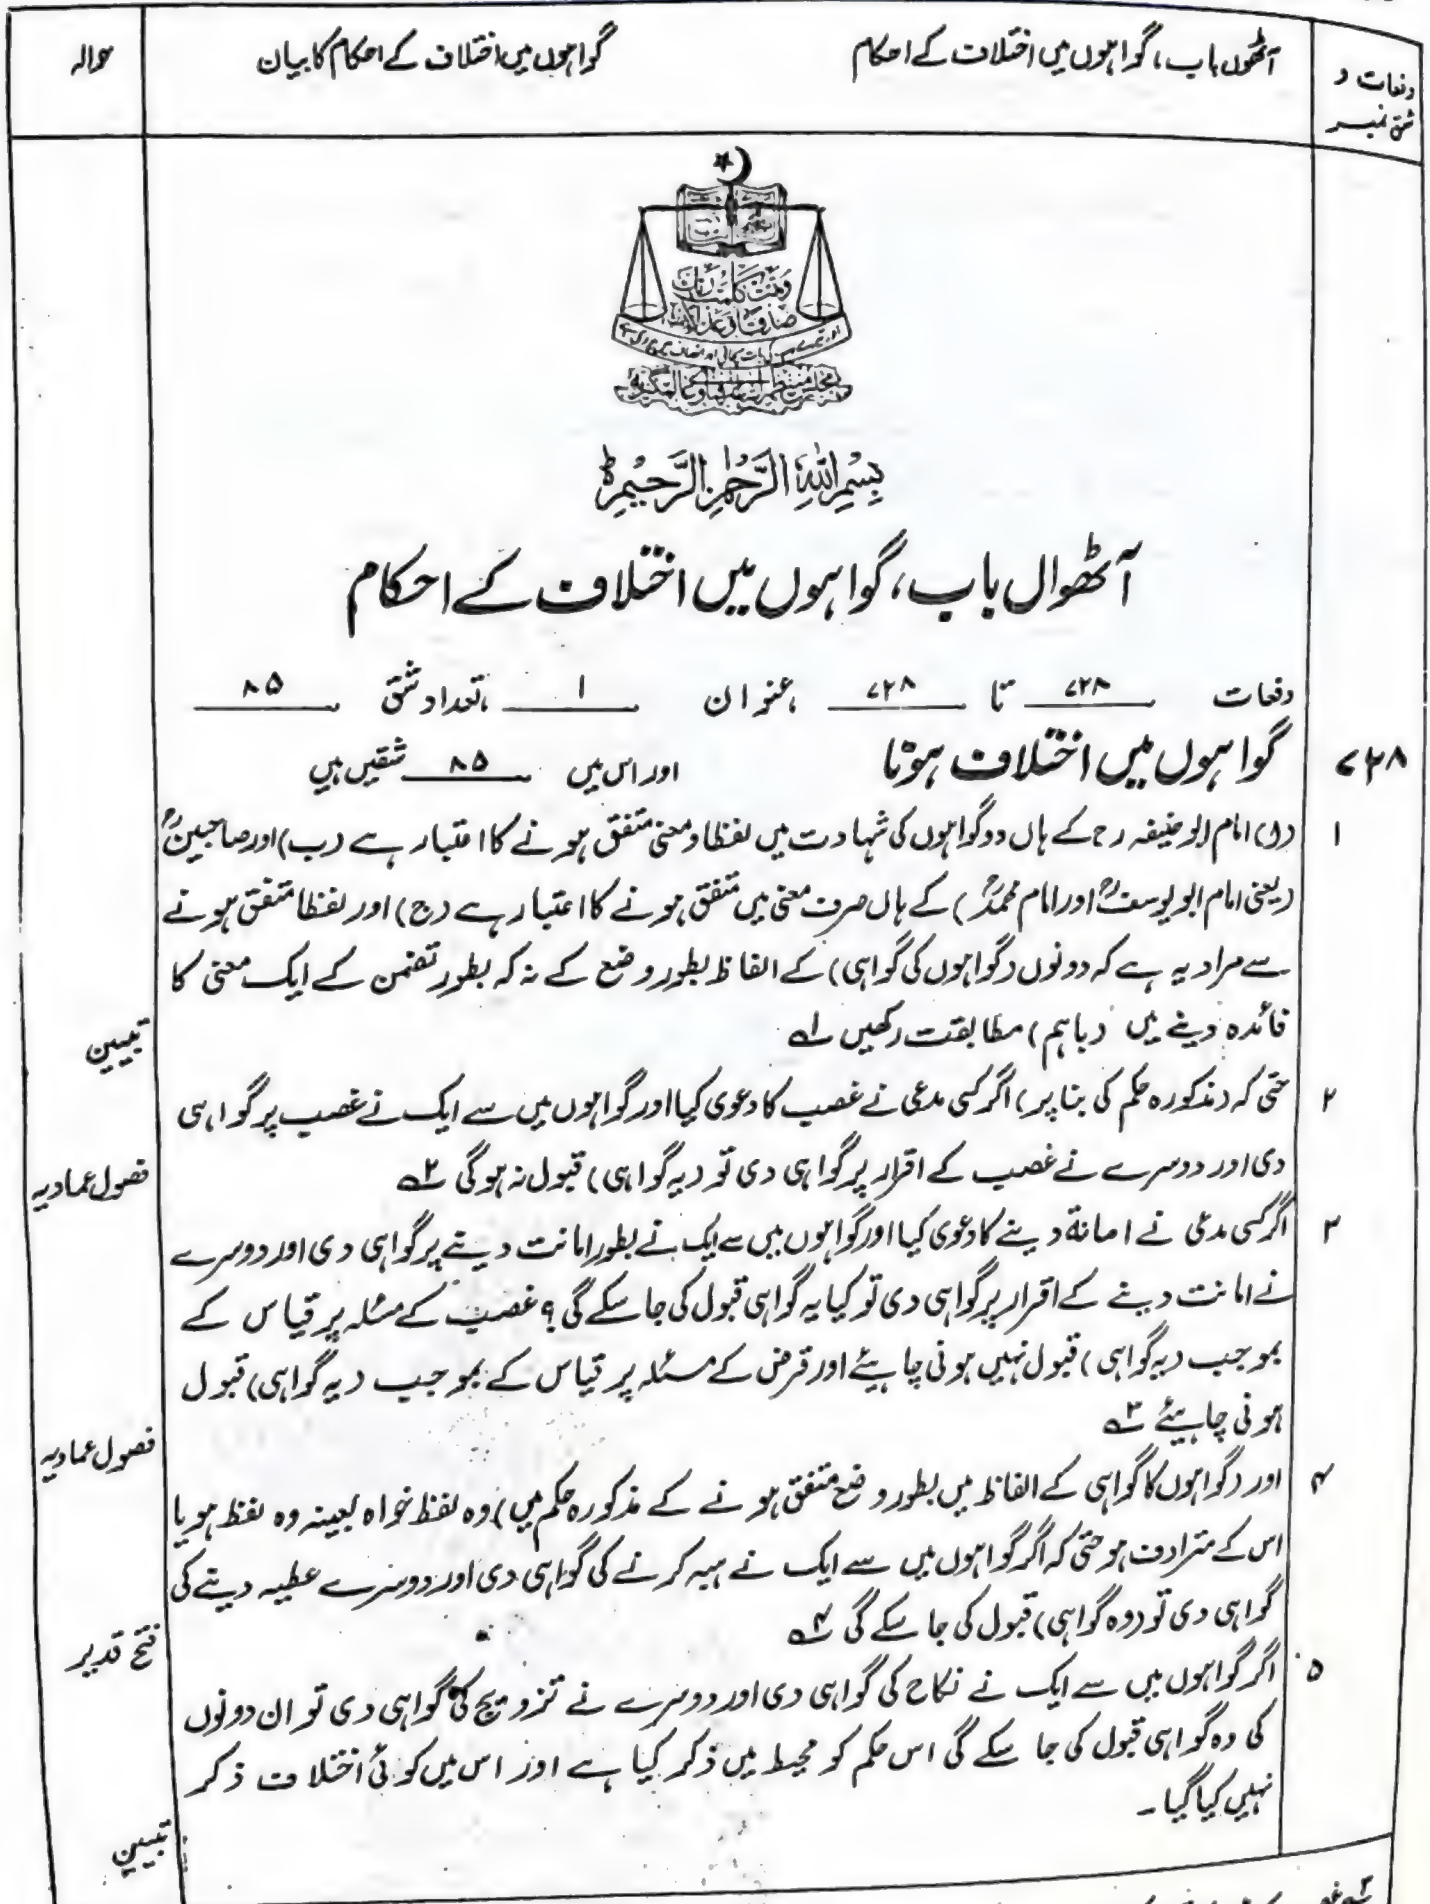 دفعات و
شق نمبر
آٹھواں باب، گواہوں میں اختلاف کے احکام
گواہوں میں اختلاف کے احکام کا بیان
حوالہ
وتمت كلمت ربك
صدقا وعدلا
بِسْمِ اللّٰهِ الرَّحْمٰنِ الرَّحِيْمِ
آٹھواں باب، گواہوں میں اختلاف کے احکام
دفعات ۷۲۸ تا ۷۲۸ ،عنوان ۱ ،تعداد شق ۸۵
۷۲۸ گواہوں میں اختلاف ہونا اور اس میں ۸۵ شقیں ہیں
۱ (ا) امام ابو حنیفہ رح کے ہاں دو گواہوں کی شہادت میں لفظا و معنی متفق ہونے کا اعتبار ہے (ب) اور صاحبینؒ
(یعنی امام ابو یوسفؒ اور امام محمدؒ) کے ہاں صرف معنی میں متفق ہونے کا اعتبار ہے (ج) اور لفظا متفق ہونے
سے مراد یہ ہے کہ دونوں (گواہوں کی گواہی) کے الفاظ بطور وضع کے نہ کہ بطور تضمن کے ایک معنی کا
فائدہ دینے میں (باہم) مطابقت رکھیں ؂۱
تبیین
۲ حتی کہ (مذکورہ حکم کی بنا پر) اگر کسی مدعی نے غصب کا دعوی کیا اور گواہوں میں سے ایک نے غصب پر گواہی
دی اور دوسرے نے غصب کے اقرار پر گواہی دی تو (یہ گواہی) قبول نہ ہوگی ؂۲
فصول عمادیہ
۳ اگر کسی مدعی نے امانة دینے کا دعوی کیا اور گواہوں میں سے ایک نے بطور امانت دینے پر گواہی دی اور دوسرے
نے امانت دینے کے اقرار پر گواہی دی تو کیا یہ گواہی قبول کی جا سکے گی؟ غصب کے مسئلہ پر قیاس کے
بموجب (یہ گواہی) قبول نہیں ہونی چاہیئے اور قرض کے مسئلہ پر قیاس کے بموجب (یہ گواہی) قبول
ہونی چاہیئے ؂۳
فصول عمادیہ
۴ اور (گواہوں کا گواہی کے الفاظ میں بطور وضع متفق ہونے کے مذکورہ حکم میں) وہ لفظ خواہ بعینہ وہ لفظ ہو یا
اس کے مترادف ہو حتی کہ اگر گواہوں میں سے ایک نے ہبہ کرنے کی گواہی دی اور دوسرے عطیہ دینے کی
گواہی دی تو (وہ گواہی) قبول کی جا سکے گی ؂۴
فتح قدیر
۵ اگر گواہوں میں سے ایک نے نکاح کی گواہی دی اور دوسرے نے تزویج کی گواہی دی تو ان دونوں
کی وہ گواہی قبول کی جا سکے گی اس حکم کو محیط میں ذکر کیا ہے اور اس میں کوئی اختلاف ذکر
نہیں کیا گیا ۔
تبیین